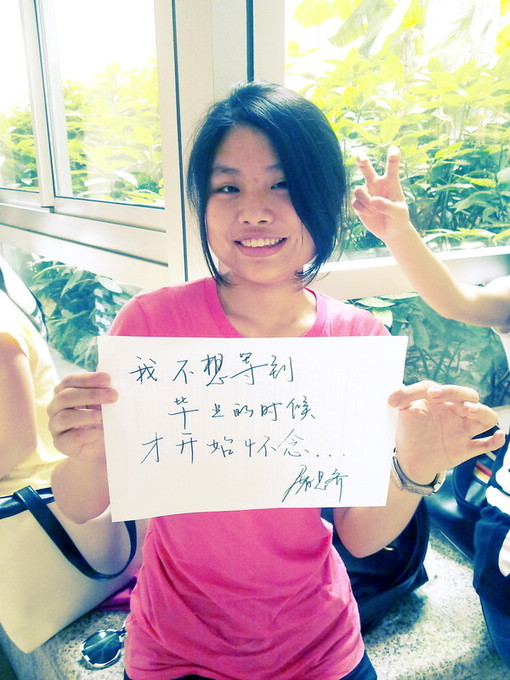 我不想等到
毕业的时候
才开始怀念...